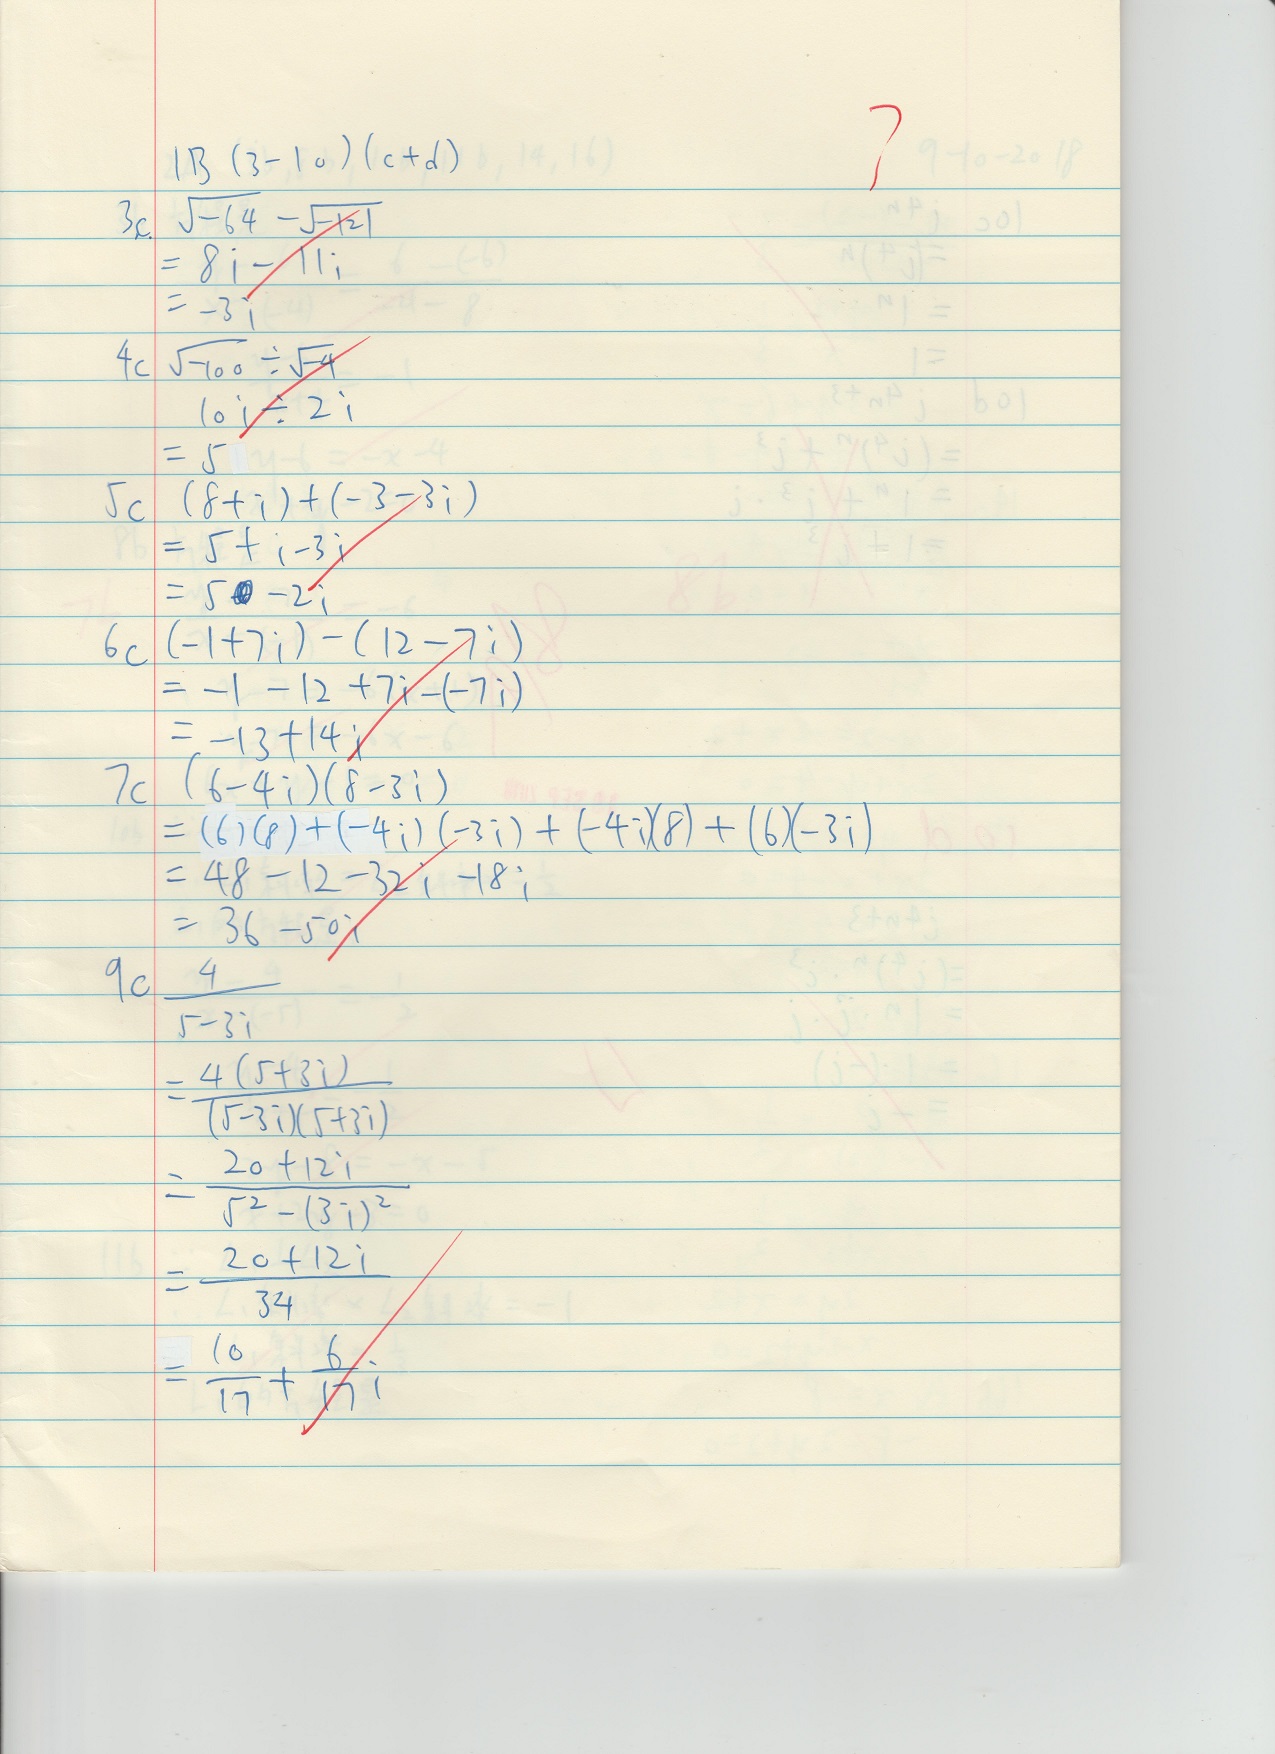 1B (3-10)(c+d)
?
3c. √-64 - √-121
= 8i - 11i
= -3i
4c √-100 ÷ √-4
10i ÷ 2i
= 5
5c (8+i)+(-3-3i)
= 5+i-3i
= 5 -2i
6c (-1+7i)-(12-7i)
= -1-12+7i-(-7i)
= -13+14i
7c (6-4i)(8-3i)
= (6)(8)+(-4i)(-3i)+(-4i)(8)+(6)(-3i)
= 48-12-32i-18i
= 36-50i
9c 4
5-3i
= 4(5+3i)
(5-3i)(5+3i)
= 20+12i
5²-(3i)²
= 20+12i
34
= 10/17 + 6/17 i